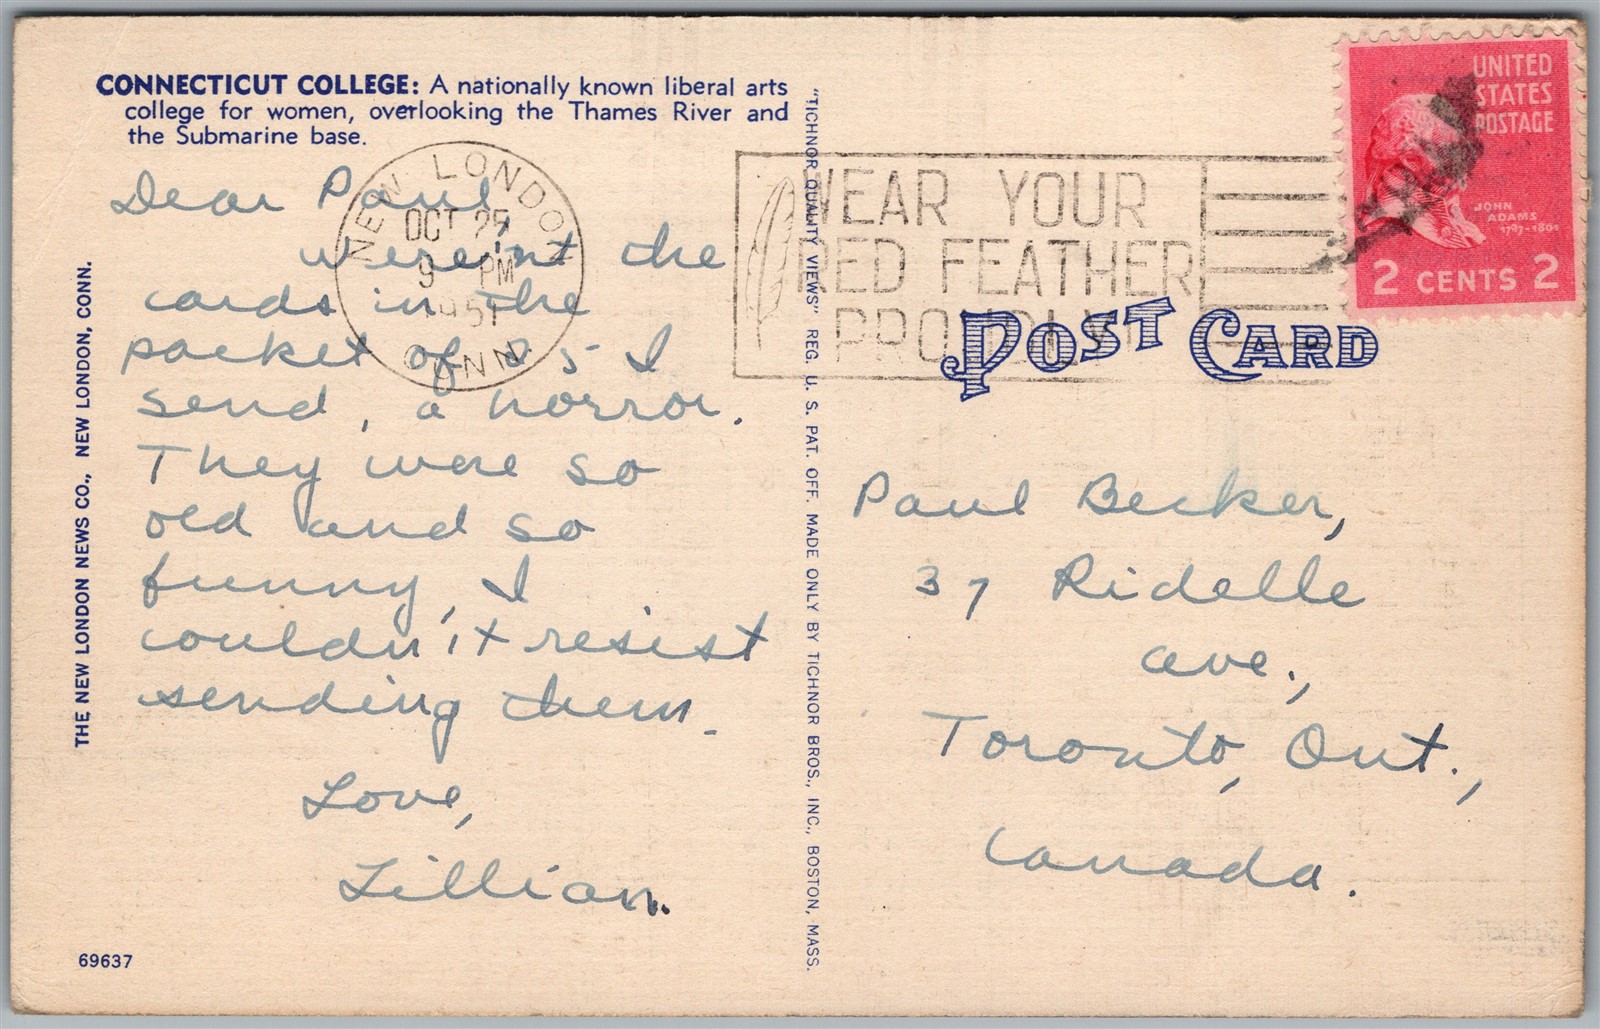 CONNECTICUT COLLEGE: A nationally known liberal arts
college for women, overlooking the Thames River and
the Submarine base.
Dear Paul
weren't the
cards in the
packet of 25 I
send, a horror.
They were so
old and so
funny, I
couldn't resist
sending them.
Love,
Lillian.
69637
THE NEW LONDON NEWS CO., NEW LONDON, CONN.
NEW LONDON
OCT 25
9 PM
1951
CONN.
"TICHNOR QUALITY VIEWS" REG. U. S. PAT. OFF. MADE ONLY BY TICHNOR BROS., INC., BOSTON, MASS.
WEAR YOUR
RED FEATHER
PROUDLY
UNITED
STATES
POSTAGE
JOHN
ADAMS
1797-1801
2 CENTS 2
POST CARD
Paul Becker,
37 Ridelle
ave.,
Toronto, Ont.,
Canada.